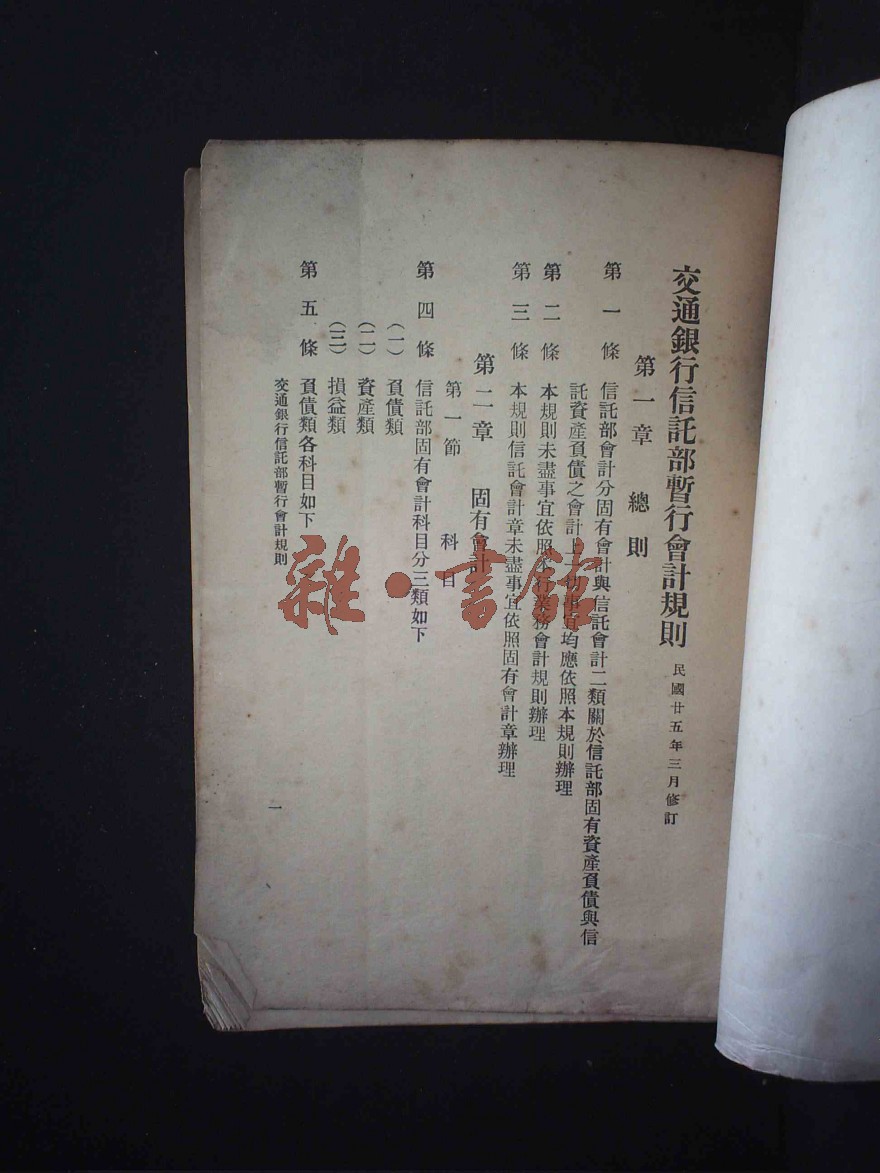 交通銀行信託部暫行會計規則 民國廿五年三月修訂
第一章 總則
第一條 信託部會計分固有會計與信託會計二類關於信託部固有資產負債與信
託資產負債之會計上一切事宜均應依照本規則辦理
第二條 本規則未盡事宜依照本行業務會計規則辦理
第三條 本規則信託會計章未盡事宜依照固有會計章辦理
第二章 固有會計
第一節 科目
第四條 信託部固有會計科目分三類如下
(一) 負債類
(二) 資產類
(三) 損益類
第五條 負債類各科目如下
交通銀行信託部暫行會計規則
一
雜·書館